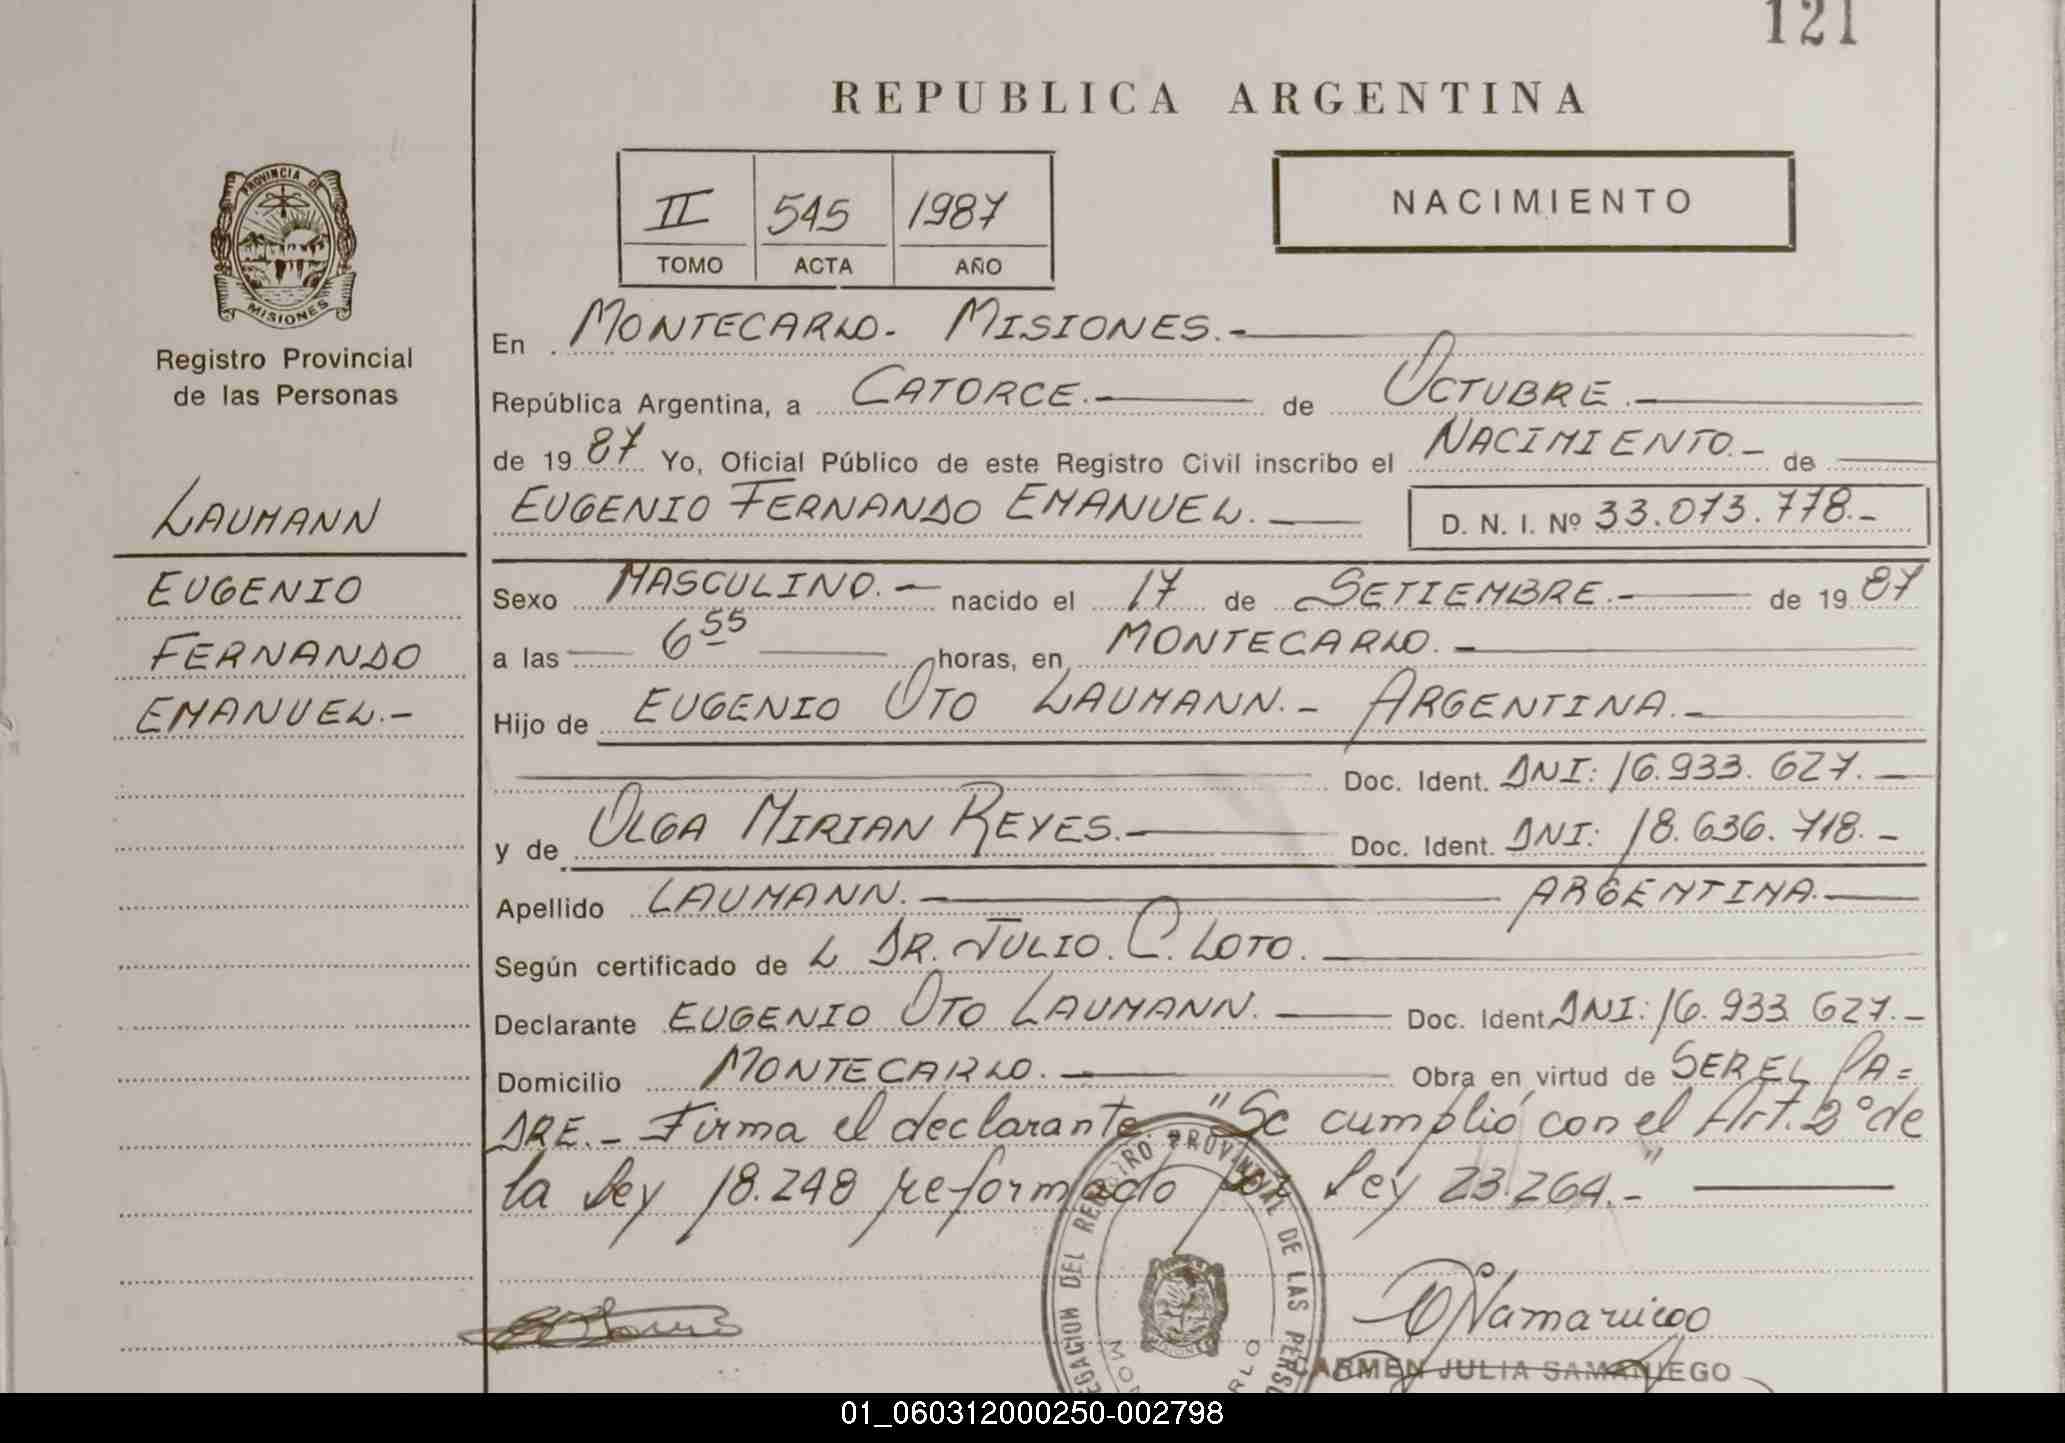 121
REPUBLICA ARGENTINA
II 545 1987
TOMO ACTA AÑO
NACIMIENTO
PROVINCIA DE
MISIONES
Registro Provincial
de las Personas
LAUMANN
EUGENIO
FERNANDO
EMANUEL.-
En MONTECARLO- MISIONES.-
República Argentina, a CATORCE.- de OCTUBRE.-
de 1987 Yo, Oficial Público de este Registro Civil inscribo el NACIMIENTO.- de
EUGENIO FERNANDO EMANUEL.- D. N. I. Nº 33.073.778.-
Sexo MASCULINO.- nacido el 17 de SETIEMBRE.- de 1987
a las 6 55 horas, en MONTECARLO.-
Hijo de EUGENIO OTO LAUMANN.- ARGENTINA.-
Doc. Ident. DNI: 16.933.627.-
y de OLGA MIRIAN REYES.- Doc. Ident. DNI: 18.636.718.-
Apellido LAUMANN.- ARGENTINA.-
Según certificado de L DR. JULIO. C. LOTO.
Declarante EUGENIO OTO LAUMANN.- Doc. Ident. DNI: 16.933.627.-
Domicilio MONTECARLO.- Obra en virtud de SER EL PA=
DRE.- Firma el declarante. "Se cumplió con el Art. 2º de
la Ley 18.248 reformado por Ley 23.264.-"
DEL REGISTRO PROVINCIAL DE LAS
CARMEN JULIA SAMANIEGO
01_060312000250-002798